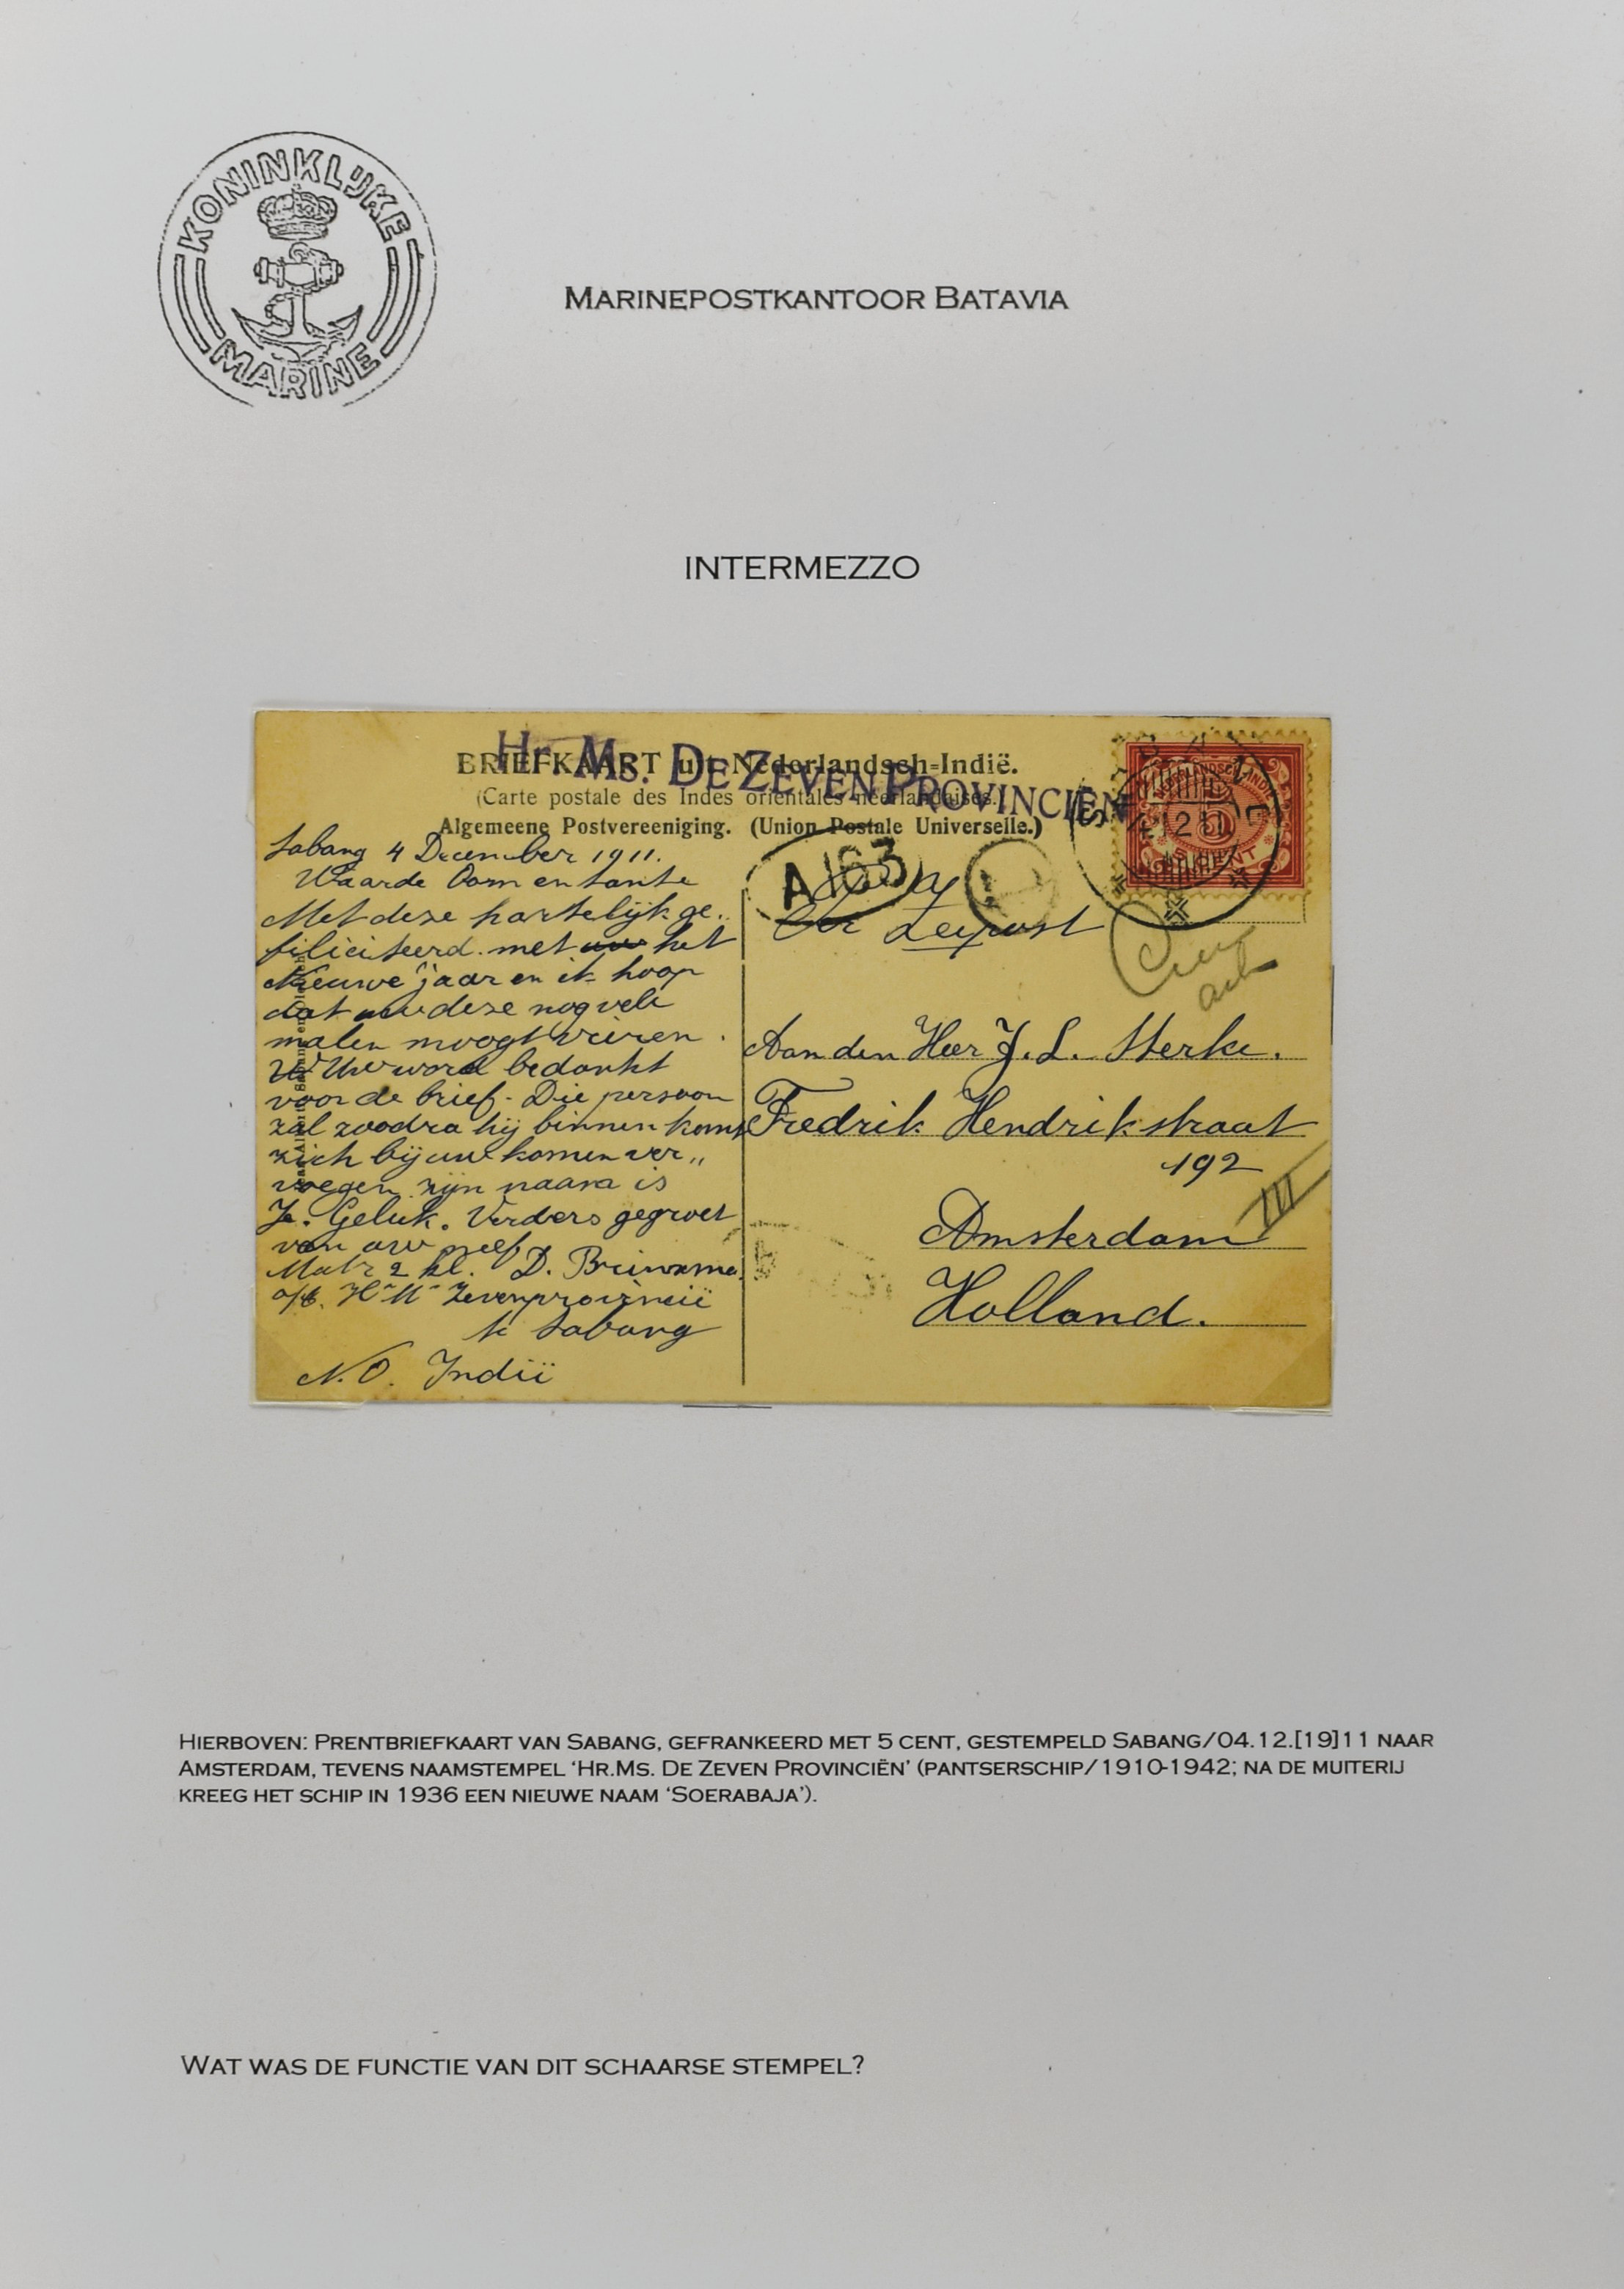 KONINKLIJKE
MARINE
MARINEPOSTKANTOOR BATAVIA
INTERMEZZO
Hr. Ms. DE ZEVEN PROVINCIËN
BRIEFKAART uit Nederlandsch-Indië.
(Carte postale des Indes orientales néerlandaises.)
Algemeene Postvereeniging. (Union Postale Universelle.)
5 CENT
A 163
Per Zeepost
Sabang 4 December 1911.
Waarde Oom en tante
Met deze hartelijk ge„
filiciteerd. met uw het
Nieuwe jaar en ik hoop
dat uw deze nog vele
malen moogt vieren.
Uw word bedankt
voor de brief. Die persoon
zal zoodra hij binnen komt
zich bij uw komen ver„
voegen zijn naam is
Je. Geluk. Verders gegroet
van uw neef
Matr 2 kl. D.
a/b. Hr Ms Zevenprovincië
te Sabang
N.O. Indië
Aan den Heer J. L. Sterke.
Fredrik Hendrikstraat
192
III
Amsterdam
Holland.
HIERBOVEN: PRENTBRIEFKAART VAN SABANG, GEFRANKEERD MET 5 CENT, GESTEMPELD SABANG/04.12.[19]11 NAAR
AMSTERDAM, TEVENS NAAMSTEMPEL ‘HR.MS. DE ZEVEN PROVINCIËN’ (PANTSERSCHIP/1910-1942; NA DE MUITERIJ
KREEG HET SCHIP IN 1936 EEN NIEUWE NAAM ‘SOERABAJA’).
WAT WAS DE FUNCTIE VAN DIT SCHAARSE STEMPEL?